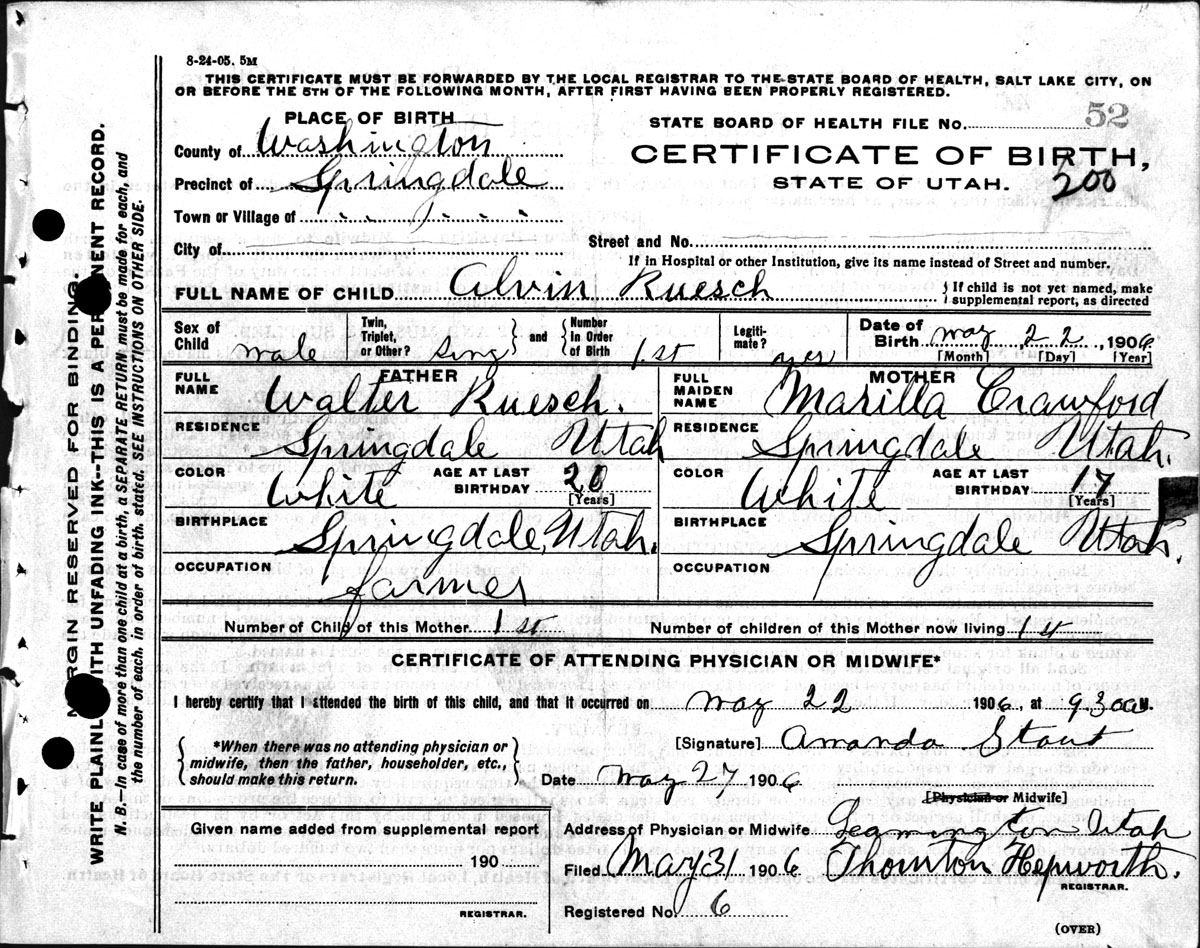 8-24-05. 5M
THIS CERTIFICATE MUST BE FORWARDED BY THE LOCAL REGISTRAR TO THE STATE BOARD OF HEALTH, SALT LAKE CITY, ON
OR BEFORE THE 5TH OF THE FOLLOWING MONTH, AFTER FIRST HAVING BEEN PROPERLY REGISTERED.
PLACE OF BIRTH
County of Washington
Precinct of Springdale
Town or Village of
City of
STATE BOARD OF HEALTH FILE No. 52
CERTIFICATE OF BIRTH,
STATE OF UTAH. 200
Street and No.
If in Hospital or other Institution, give its name instead of Street and number.
FULL NAME OF CHILD Alvin Ruesch { If child is not yet named, make
supplemental report, as directed
Sex of Child male
Twin, Triplet, or Other? Sing } and { Number in Order of Birth 1st
Legitimate? yes
Date of Birth May 22, 1906
[Month] [Day] [Year]
FATHER
FULL NAME Walter Ruesch.
RESIDENCE Springdale Utah
COLOR White AGE AT LAST BIRTHDAY [Years]
BIRTHPLACE Springdale, Utah.
OCCUPATION farmer
MOTHER
FULL MAIDEN NAME Marilla Crawford
RESIDENCE Springdale Utah.
COLOR White AGE AT LAST BIRTHDAY 17 [Years]
BIRTHPLACE Springdale Utah.
OCCUPATION
Number of Child of this Mother 1st Number of children of this Mother now living 1st
CERTIFICATE OF ATTENDING PHYSICIAN OR MIDWIFE*
I hereby certify that I attended the birth of this child, and that it occurred on May 22 1906, at 930 a M.
{ *When there was no attending physician or
midwife, then the father, householder, etc.,
should make this return. }
[Signature] Amanda Stout
Date May 27 1906
[Physician or Midwife]
Given name added from supplemental report
190
REGISTRAR.
Address of Physician or Midwife Leamington Utah
Filed May 31 1906 Thornton Hepworth.
REGISTRAR.
Registered No. 6
(OVER)
MARGIN RESERVED FOR BINDING
WRITE PLAINLY WITH UNFADING INK--THIS IS A PERMANENT RECORD.
N. B.—In case of more than one child at a birth, a SEPARATE RETURN must be made for each, and
the number of each, in order of birth, stated. SEE INSTRUCTIONS ON OTHER SIDE.